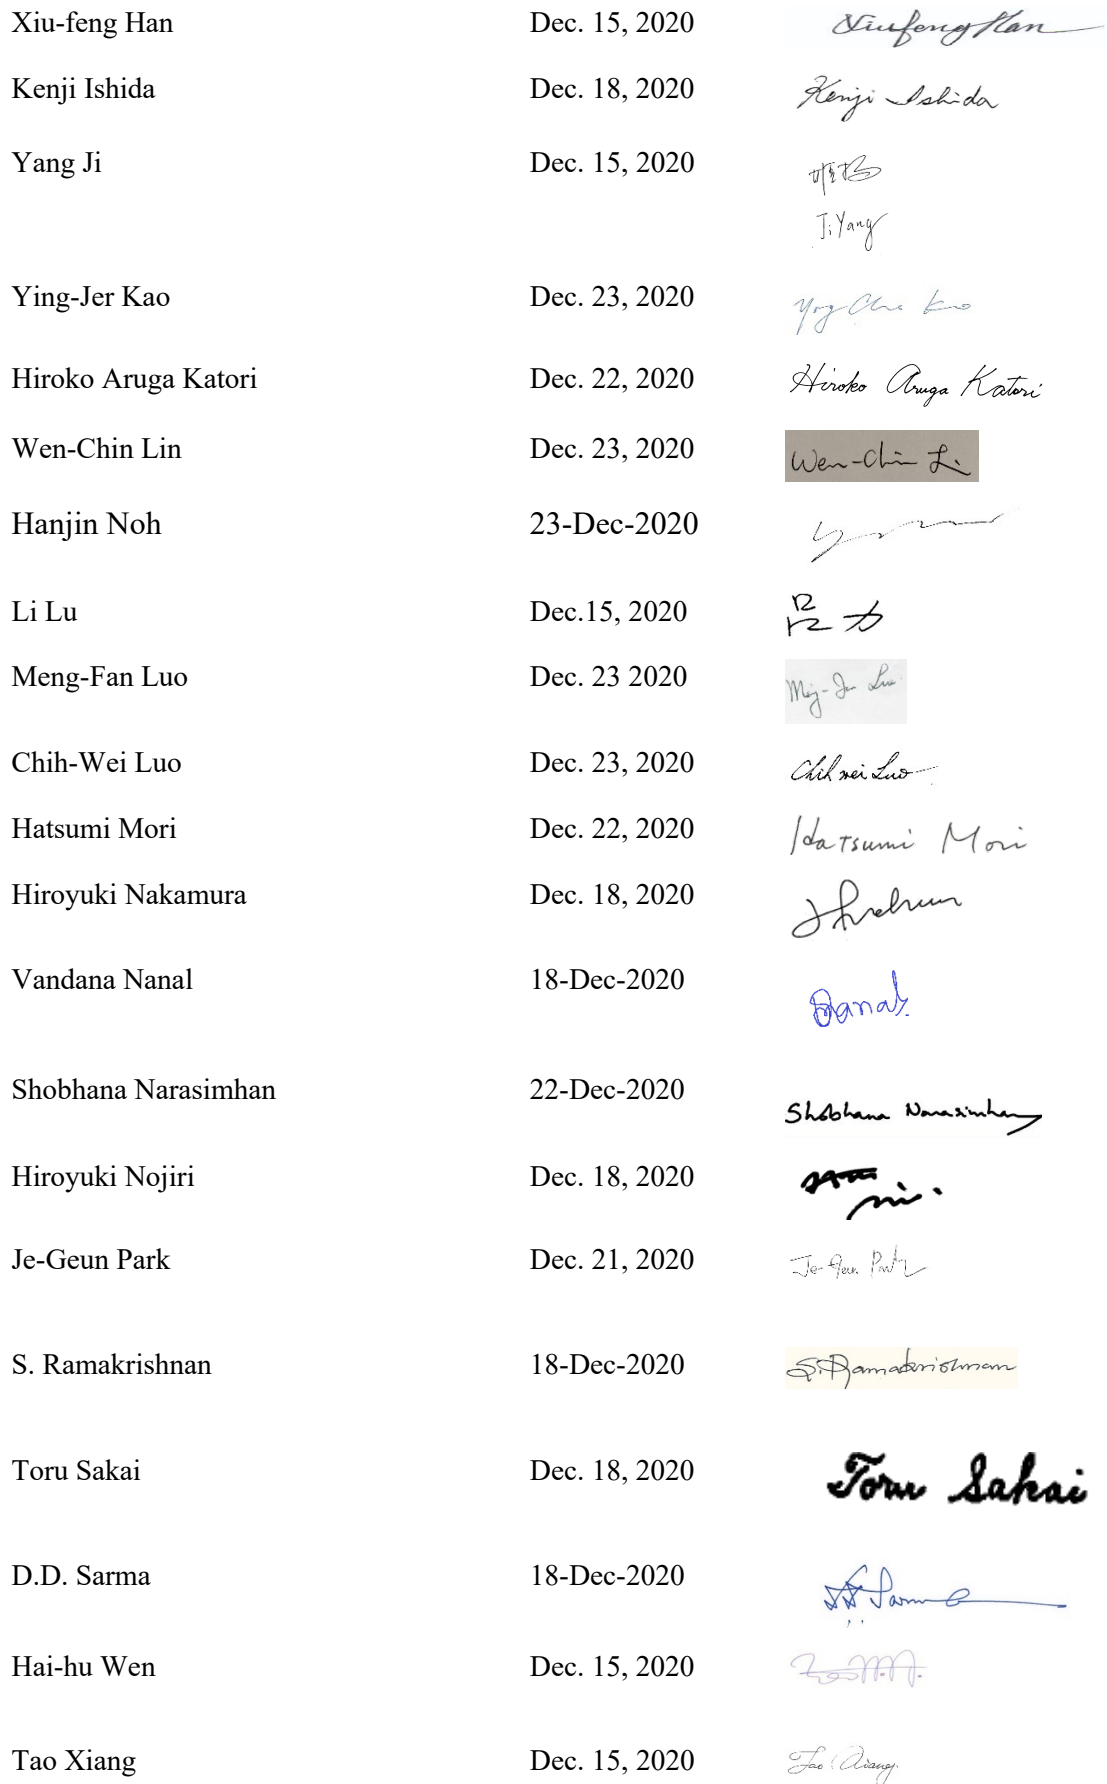 Xiu-feng Han Dec. 15, 2020 Xiufeng Han
Kenji Ishida Dec. 18, 2020 Kenji Ishida
Yang Ji Dec. 15, 2020
Ji Yang
Ying-Jer Kao Dec. 23, 2020
Hiroko Aruga Katori Dec. 22, 2020 Hiroko Aruga Katori
Wen-Chin Lin Dec. 23, 2020 Wen-Chin Li
Hanjin Noh 23-Dec-2020
Li Lu Dec.15, 2020 吕力
Meng-Fan Luo Dec. 23 2020
Chih-Wei Luo Dec. 23, 2020 Chih wei Luo
Hatsumi Mori Dec. 22, 2020 Hatsumi Mori
Hiroyuki Nakamura Dec. 18, 2020
Vandana Nanal 18-Dec-2020
Shobhana Narasimhan 22-Dec-2020 Shobhana Narasimhan
Hiroyuki Nojiri Dec. 18, 2020
Je-Geun Park Dec. 21, 2020 Je-Geun Park
S. Ramakrishnan 18-Dec-2020 S. Ramakrishnan
Toru Sakai Dec. 18, 2020 Toru Sakai
D.D. Sarma 18-Dec-2020 DD Sarma
Hai-hu Wen Dec. 15, 2020
Tao Xiang Dec. 15, 2020 Tao Xiang